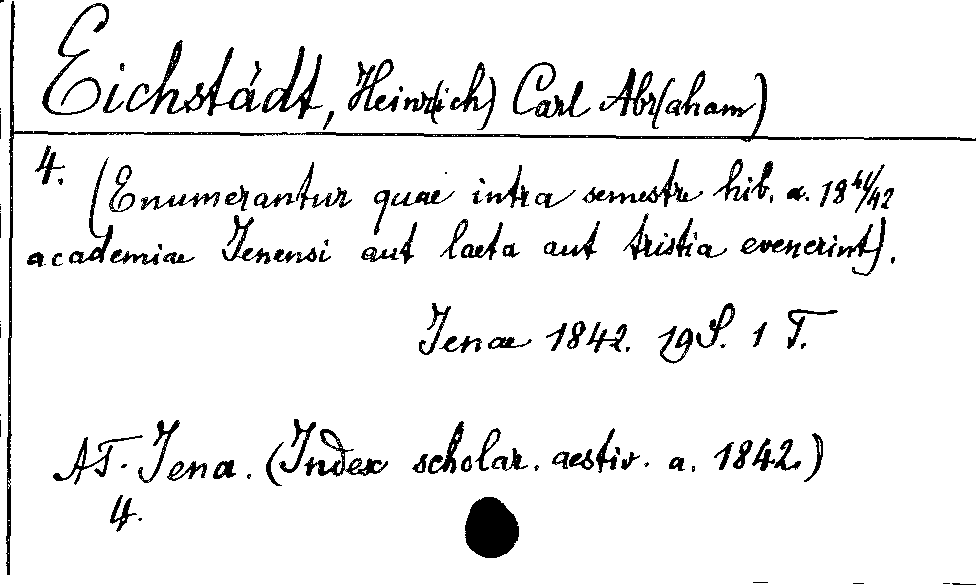 Eichstädt, Heinr(ich) Carl Abr(aham)
4. (Enumerantur quae intra semestre hib. a. 1841/42
academiae Ienensi aut laeta aut tristia evenerint).
Jenae 1842. 19 S. 1 T.
AT. Jena. (Index scholar. aestiv. a. 1842.)
4.